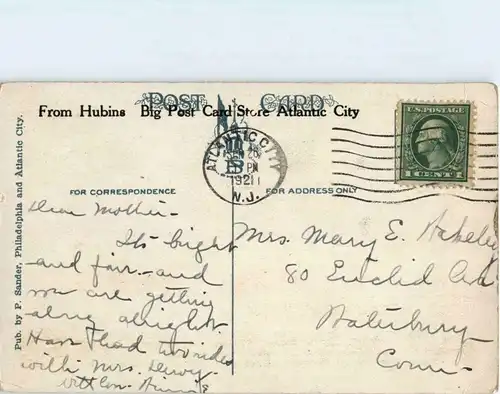 POST CARD
From Hubins Big Post Card Store Atlantic City
U.S. POSTAGE
1 CENT 1
ATLANTIC CITY
PM
1921
N.J.
FOR CORRESPONDENCE
FOR ADDRESS ONLY
Pub. by P. Sander, Philadelphia and Atlantic City.
Dear Mother -
It's bright
and fair - and
we are getting
along alright.
Have had two rides
with Mrs.
Mrs. Mary E.
80 Euclid Av
Waterbury
Conn -